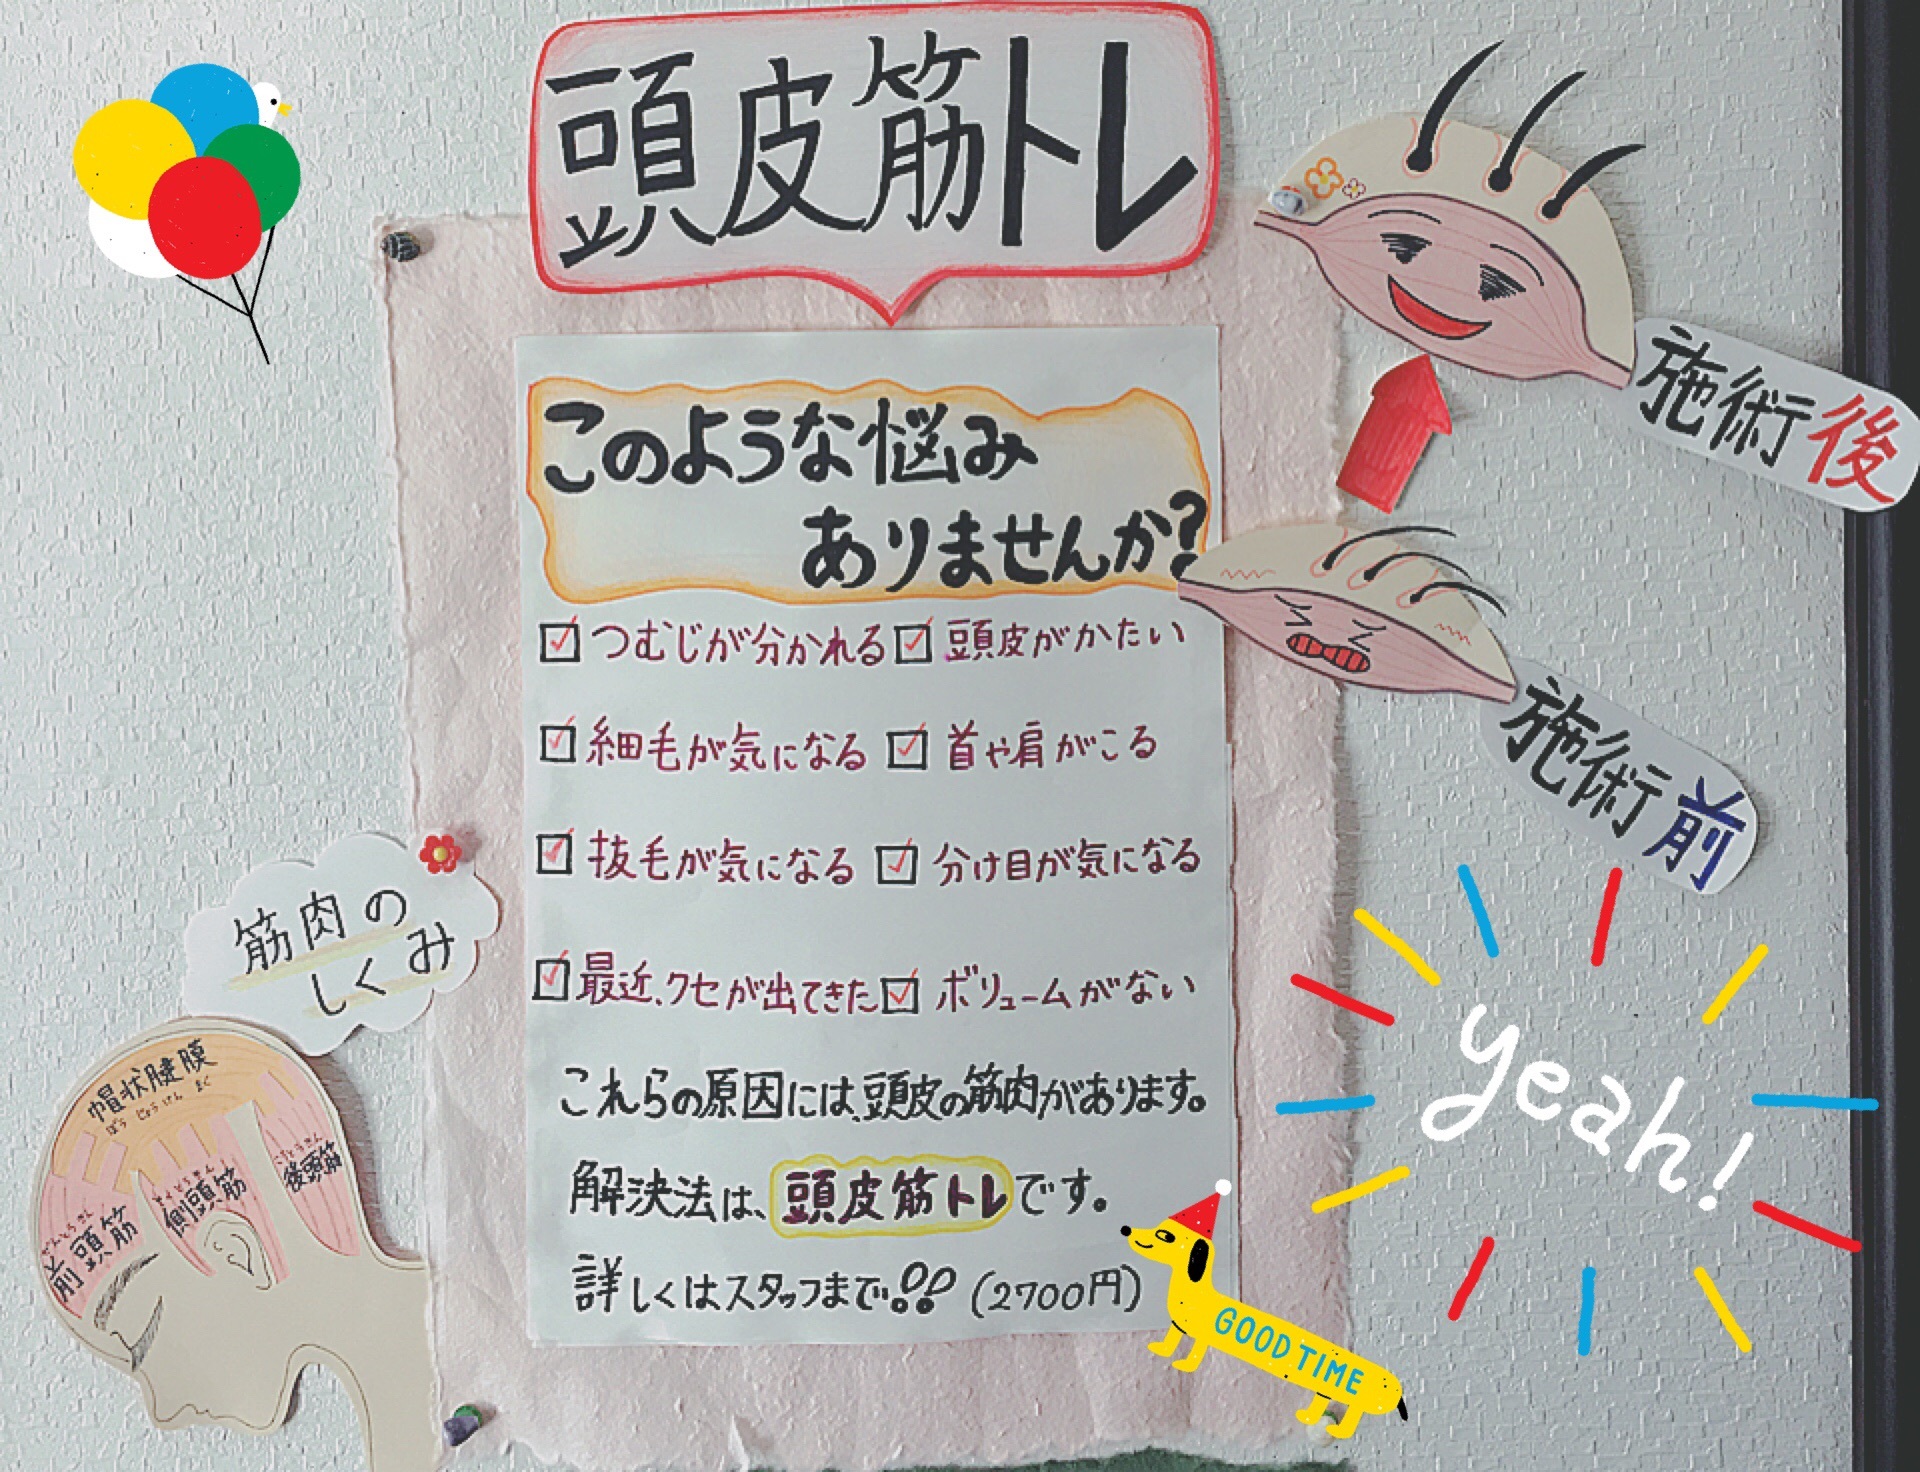 頭皮筋トレ
このような悩み
ありませんか?
つむじが分かれる
頭皮がかたい
細毛が気になる
首や肩がこる
抜毛が気になる
分け目が気になる
最近、クセが出てきた
ボリュームがない
これらの原因には、頭皮の筋肉があります。
解決法は、頭皮筋トレです。
詳しくはスタッフまで!! (2700円)
施術後
施術前
筋肉の
しくみ
帽状腱膜
ぼうじょうけんまく
ぜんとうきん
前頭筋
そくとうきん
側頭筋
こうとうきん
後頭筋
yeah!
GOOD TIME